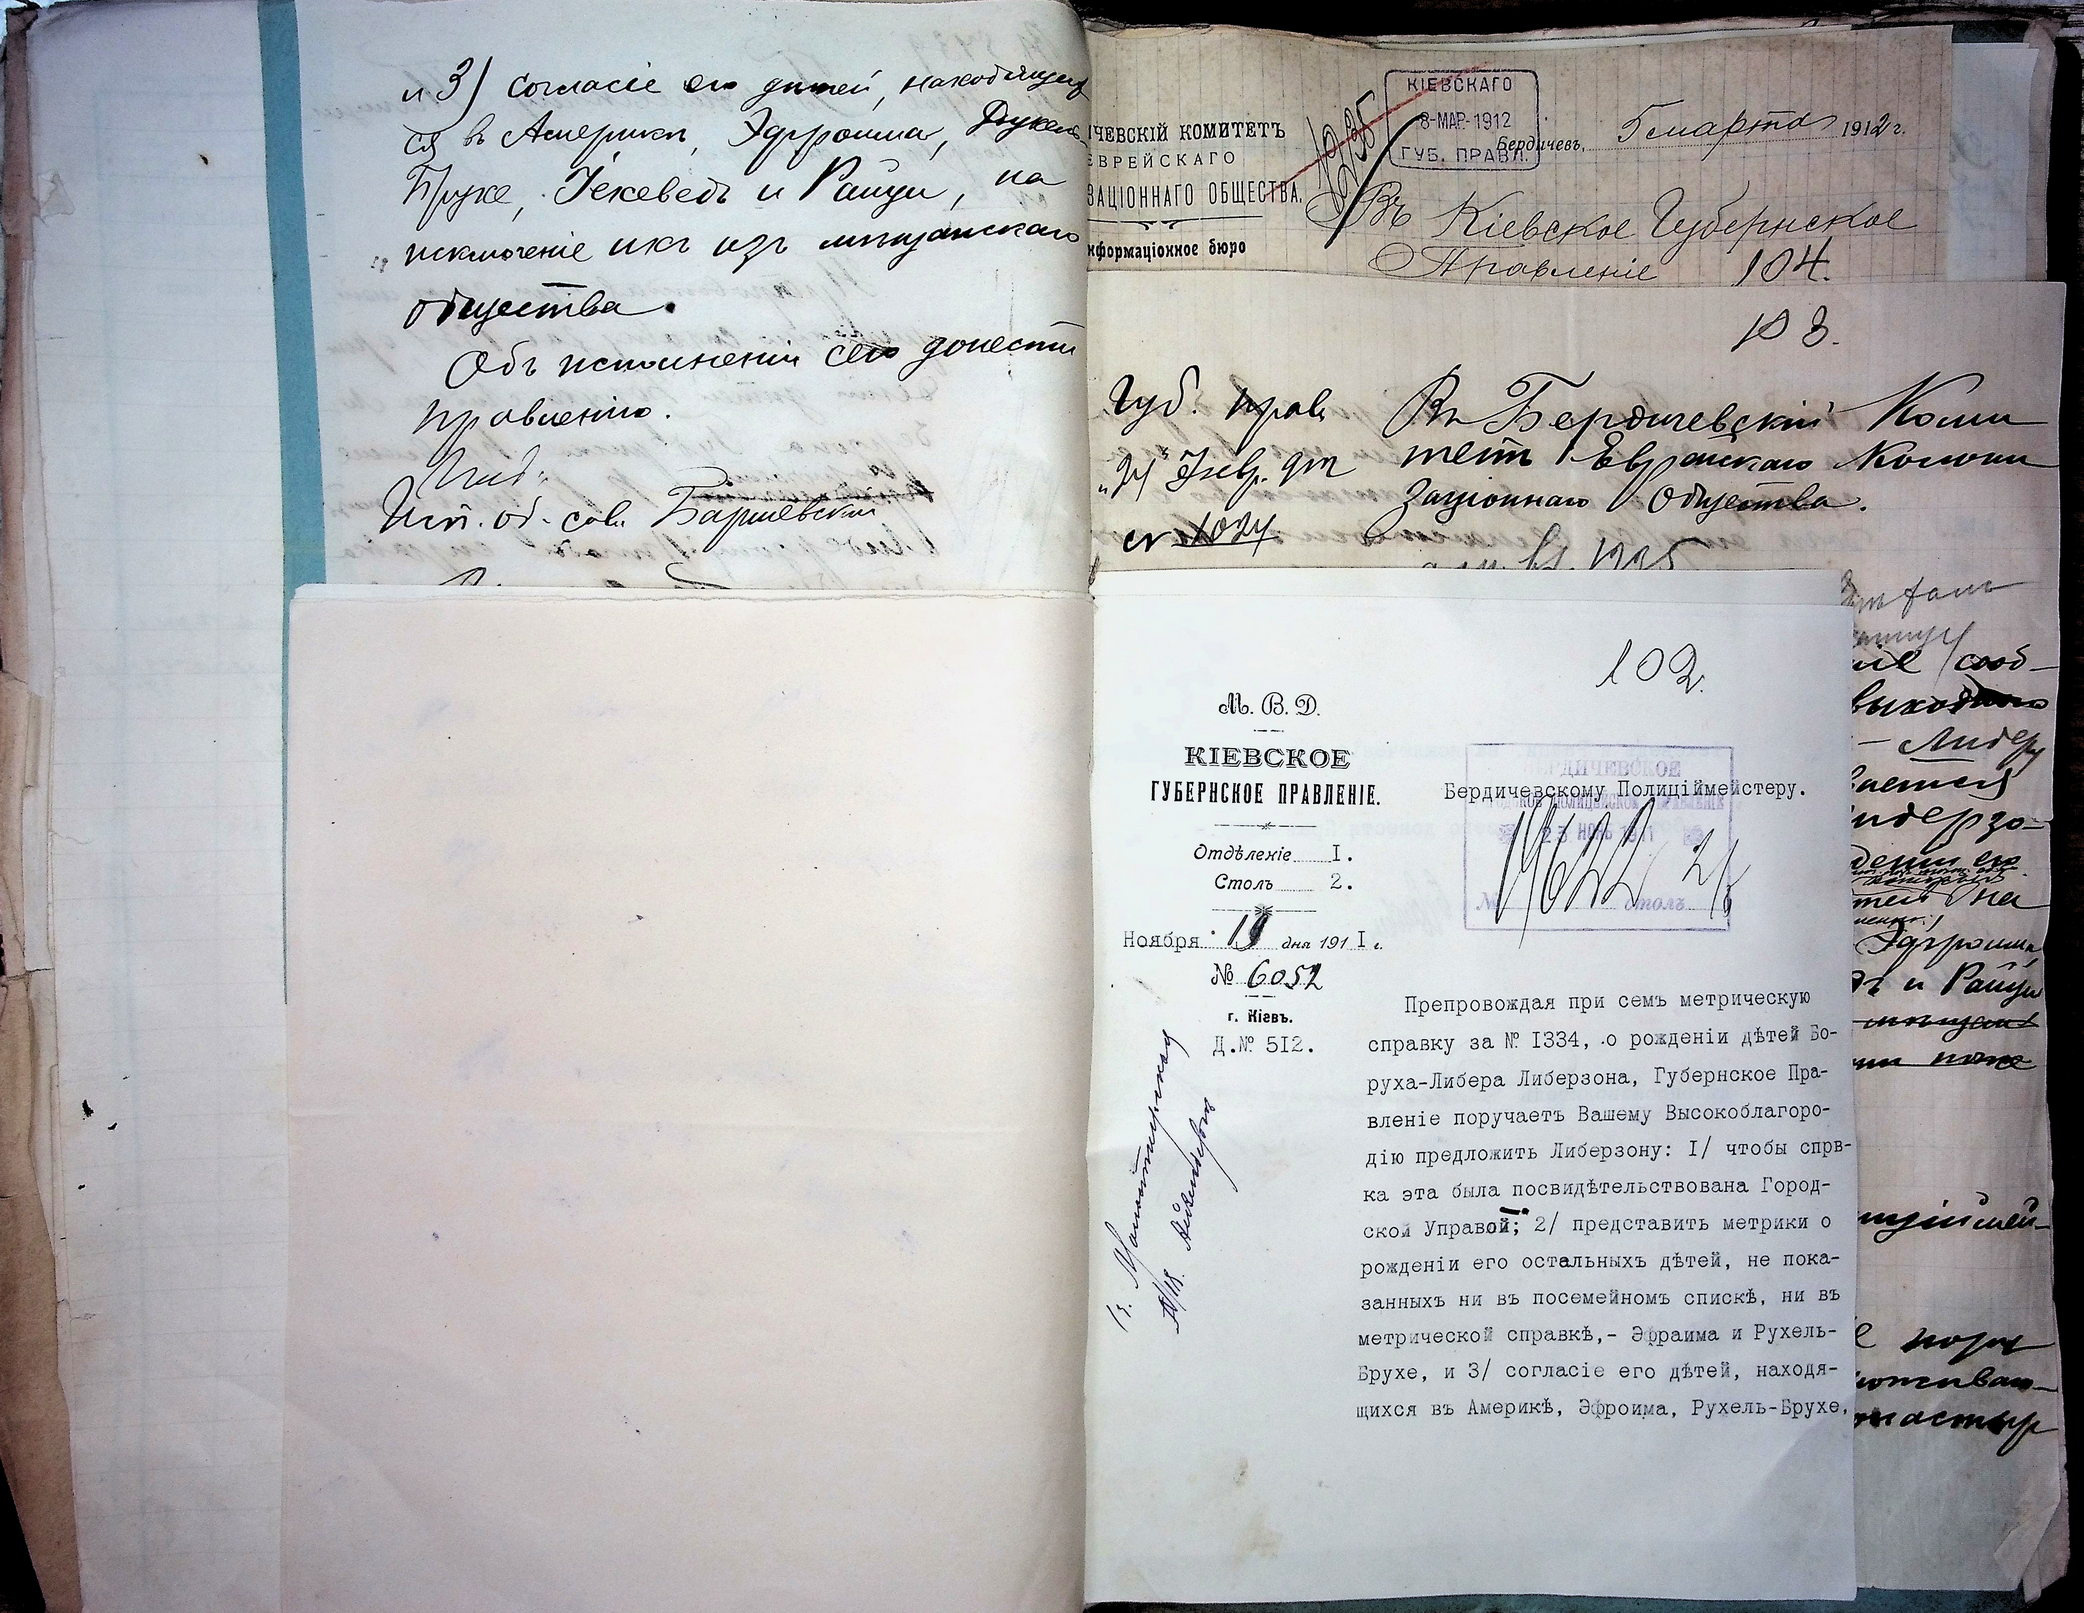 и 3) согласіе его дѣтей, находящих
ся въ Америкѣ, Эфроима, Рухель
Брухе, Іехеведъ и Райцы, на
исключеніе ихъ изъ мѣщанскаго
общества.
Объ исполненіи сего донести
правленію.
Исп. об. сов. Баршевскій
ИЧЕВСКІЙ КОМИТЕТЪ
ЕВРЕЙСКАГО
ЗАЦІОННАГО ОБЩЕСТВА.
нформаціонное бюро
КІЕВСКАГО
8-МАР-1912
ГУБ. ПРАВЛ.
Бердичевъ, 5 марта 1912 г.
1235
Въ Кіевское Губернское
Правленіе 104.
103.
Губ. Прав
Въ Бердичевскій Коми
тетъ Еврейскаго Колони
заціоннаго Общества.
№ 1024
102.
М. В. Д.
КІЕВСКОЕ
ГУБЕРНСКОЕ ПРАВЛЕНІЕ.
Отдѣленіе I.
Столъ 2.
Ноября 19 дня 191I г.
№ 6052
г. Кіевъ.
Д.№ 5I2.
БЕРДИЧЕВСКОЕ
ГОРОДСКОЕ ПОЛИЦЕЙСКОЕ УПРАВЛЕНІЕ
НОЯ 1911
№ 19622 столъ 2/
Бердичевскому Полиціймейстеру.
Препровождая при семъ метрическую
справку за № I334, о рожденіи дѣтей Бо-
руха-Либера Либерзона, Губернское Пра-
вленіе поручаетъ Вашему Высокоблагоро-
дію предложить Либерзону: I/ чтобы спрв-
ка эта была посвидѣтельствована Город-
ской Управой; 2/ представить метрики о
рожденіи его остальныхъ дѣтей, не пока-
занныхъ ни въ посемейномъ спискѣ, ни въ
метрической справкѣ,- Эфраима и Рухель-
Брухе, и 3/ согласіе его дѣтей, находя-
щихся въ Америкѣ, Эфроима, Рухель-Брухе,